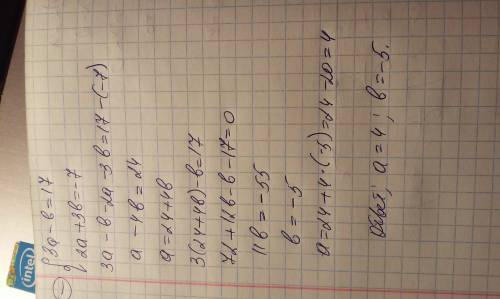 {3a-в=17
{2a+3в=-7
3a-в-2a-3в=17-(-7)
a-4в=24
a=24+4в
3(24+4в)-в=17
72+12в-в-17=0
11в=-55
в=-5
a=24+4·(-5)=24-20=4
Ответ; a=4; в=-5.
intel